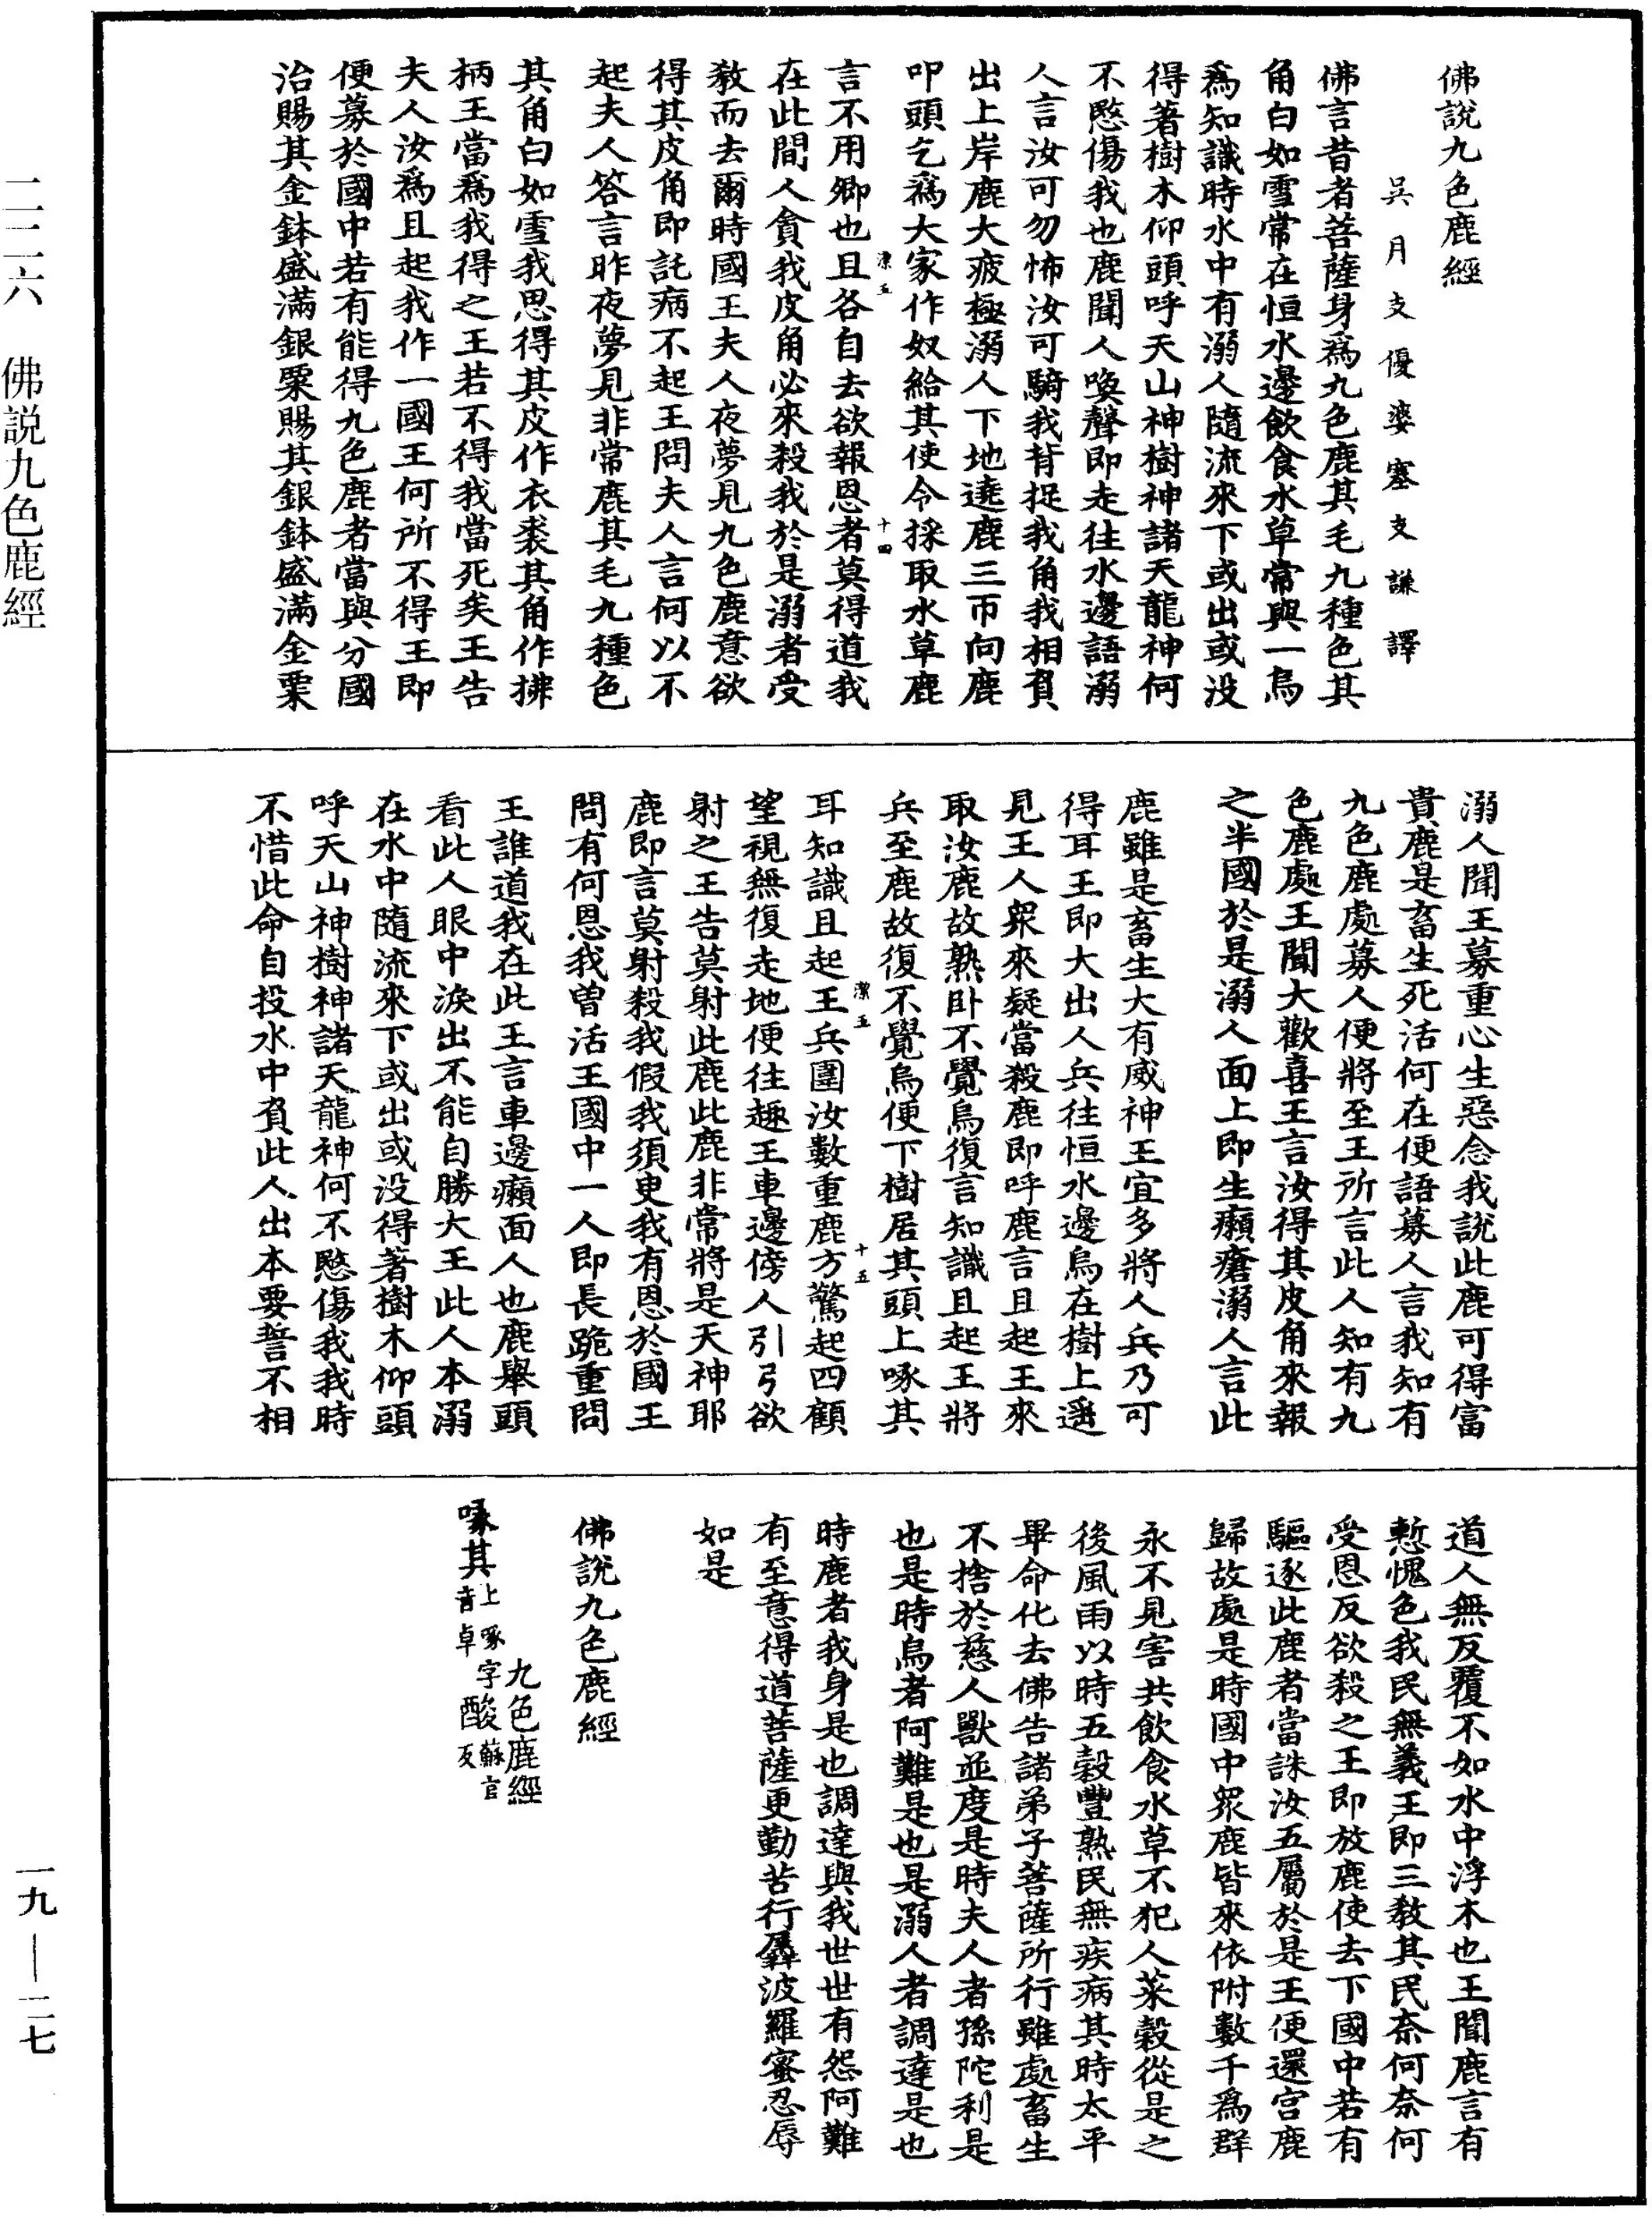 佛說九色鹿經
吳月支優婆塞支謙譯
佛言昔者菩薩身爲九色鹿其毛九種色其
角白如雪常在恒水邊飲食水草常與一烏
爲知識時水中有溺人隨流來下或出或没
得著樹木仰頭呼天山神樹神諸天龍神何
不愍傷我也鹿聞人喚聲即走往水邊語溺
人言汝可勿怖汝可騎我背捉我角我相負
出上岸鹿大疲極溺人下地遶鹿三帀向鹿
叩頭乞爲大家作奴給其使令採取水草鹿
潔五
十四
言不用卿也且各自去欲報恩者莫得道我
在此間人貪我皮角必來殺我於是溺者受
敎而去爾時國王夫人夜夢見九色鹿意欲
得其皮角即託病不起王問夫人言何以不
起夫人答言昨夜夢見非常鹿其毛九種色
其角白如雪我思得其皮作衣裘其角作拂
柄王當爲我得之王若不得我當死矣王告
夫人汝爲且起我作一國王何所不得王即
便募於國中若有能得九色鹿者當與分國
治賜其金鉢盛滿銀粟賜其銀鉢盛滿金粟
溺人聞王募重心生惡念我說此鹿可得富
貴鹿是畜生死活何在便語募人言我知有
九色鹿處募人便將至王所言此人知有九
色鹿處王聞大歡喜王言汝得其皮角來報
之半國於是溺人面上即生癩瘡溺人言此
鹿雖是畜生大有威神王宜多將人兵乃可
得耳王即大出人兵往恒水邊烏在樹上遥
見王人衆來疑當殺鹿即呼鹿言且起王來
取汝鹿故熟卧不覺烏復言知識且起王將
兵至鹿故復不覺烏便下樹居其頭上啄其
潔五
十五
耳知識且起王兵圍汝數重鹿方驚起四顧
望視無復走地便往趣王車邊傍人引弓欲
射之王告莫射此鹿此鹿非常將是天神耶
鹿即言莫射殺我假我須臾我有恩於國王
問有何恩我曾活王國中一人即長跪重問
王誰道我在此王言車邊癩面人也鹿舉頭
看此人眼中淚出不能自勝大王此人本溺
在水中隨流來下或出或没得著樹木仰頭
呼天山神樹神諸天龍神何不愍傷我我時
不惜此命自投水中負此人出本要誓不相
道人無反覆不如水中浮木也王聞鹿言有
慙愧色我民無義王即三敎其民奈何奈何
受恩反欲殺之王即放鹿使去下國中若有
驅逐此鹿者當誅汝五屬於是王便還宫鹿
歸故處是時國中衆鹿皆來依附數千爲群
永不見害共飲食水草不犯人菜穀從是之
後風雨以時五穀豐熟民無疾病其時太平
畢命化去佛告諸弟子菩薩所行雖處畜生
不捨於慈人獸並度是時夫人者孫陀利是
也是時烏者阿難是也是溺人者調達是也
時鹿者我身是也調達與我世世有怨阿難
有至意得道菩薩更勤苦行羼波羅蜜忍辱
如是
佛說九色鹿經
九色鹿經
啄其上音卓啄字酸蘇官反
二二六　佛説九色鹿經
一九—二七